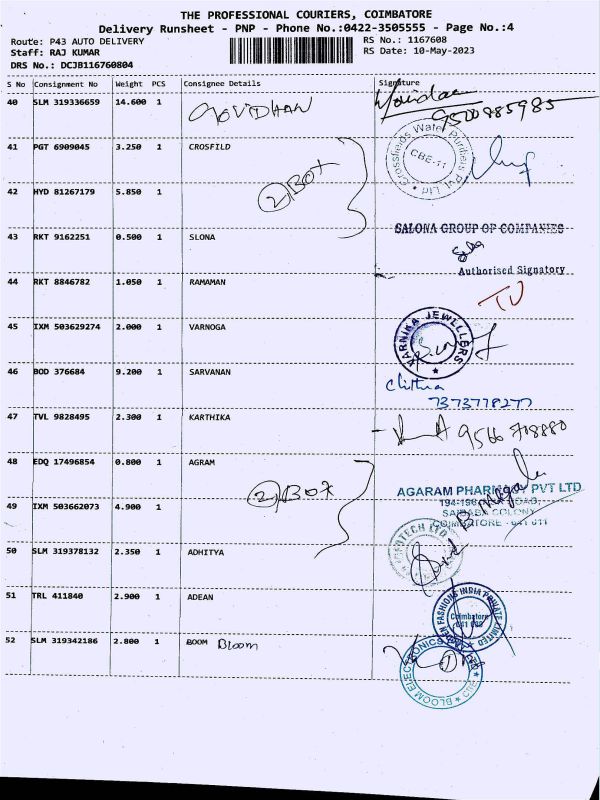 THE PROFESSIONAL COURIERS, COIMBATORE
Delivery Runsheet - PNP - Phone No.:0422-3505555 - Page No.:4
Route: P43 AUTO DELIVERY
Staff: RAJ KUMAR
DRS No.: DCJB116760804
RS No.: 1167608
RS Date: 10-May-2023
S No Consignment No Weight PCS Consignee Details Signature
40 SLM 319336659 14.600 1 GOVIDHAN
9500885985
41 PGT 6909045 3.250 1 CROSFILD
Crossfields Water Purifiers Pvt Ltd
CBE-11
2 BOX
42 HYD 81267179 5.850 1
43 RKT 9162251 0.500 1 SLONA
SALONA GROUP OF COMPANIES
Authorised Signatory
44 RKT 8846782 1.050 1 RAMAMAN
45 IXM 503629274 2.000 1 VARNOGA
VARNIKA JEWELLERS
46 BOD 376684 9.200 1 SARVANAN
Chithra
7373778277
47 TVL 9828495 2.300 1 KARTHIKA
9566718880
48 EDQ 17496854 0.800 1 AGRAM
2 BOX
AGARAM PHARMACY PVT LTD
SAIBABA COLONY
COIMBATORE - 641 011
49 IXM 503662073 4.900 1
50 SLM 319378132 2.350 1 ADHITYA
51 TRL 411840 2.900 1 ADEAN
FASHIONS INDIA PRIVATE LIMITED
Coimbatore
52 SLM 319342186 2.800 1 BOOM Bloom
BLOOM ELECTRONICS